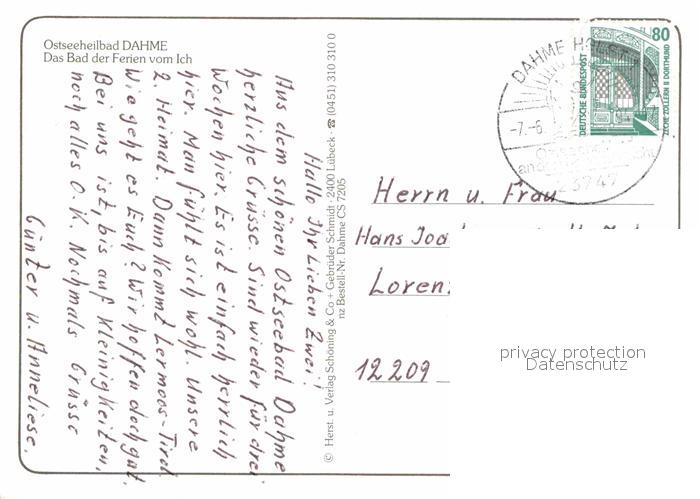 Ostseeheilbad DAHME
Das Bad der Ferien vom Ich
Hallo Ihr Lieben Zwei!
Aus dem schönen Ostseebad Dahme
herzliche Grüsse. Sind wieder für drei
Wochen hier. Es ist einfach herrlich
hier. Man fühlt sich wohl. Unsere
2. Heimat. Dann kommt Lermoos-Tirol.
Wie geht es Euch? Wir hoffen doch gut.
Bei uns ist, bis auf Kleinigkeiten,
noch alles O.K. Nochmals Grüsse
Günter u. Anneliese.
© Herst. u. Verlag Schöning & Co + Gebrüder Schmidt · 2400 Lübeck · ☎ (0451) 310 310 0
nz Bestell-Nr. Dahme CS 7205
DAHME HOLST
-7.-6
23747
80
DEUTSCHE BUNDESPOST
ZECHE ZOLLERN II DORTMUND
Herrn u. Frau
Hans Joa
Loren
12209
privacy protection
Datenschutz